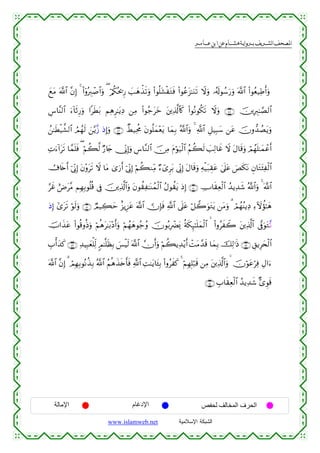 المصحف الشريف برواية هشام عن ابن عامر
وَأَطِيعُوا۟ ٱللَّهَ وَرَسُولَهُۥ وَلَا تَنَٰزَعُوا۟ فَتَفْشَلُوا۟ وَتَذْهَبَ رِيحُكُمْ ۖ وَٱصْبِرُوٓا۟ ۚ إِنَّ ٱللَّهَ مَعَ
ٱلصَّٰبِرِينَ ۝ وَلَا تَكُونُوا۟ كَٱلَّذِينَ خَرَجُوا۟ مِن دِيَٰرِهِم بَطَرًا وَرِئَآءَ ٱلنَّاسِ
وَيَصُدُّونَ عَن سَبِيلِ ٱللَّهِ ۚ وَٱللَّهُ بِمَا يَعْمَلُونَ مُحِيطٌ ۝ وَإِذ زَّيَّنَ لَهُمُ ٱلشَّيْطَٰنُ
أَعْمَٰلَهُمْ وَقَالَ لَا غَالِبَ لَكُمُ ٱلْيَوْمَ مِنَ ٱلنَّاسِ وَإِنِّى جَارٌ لَّكُمْ ۖ فَلَمَّا تَرَآءَتِ
ٱلْفِئَتَانِ نَكَصَ عَلَىٰ عَقِبَيْهِ وَقَالَ إِنِّى بَرِىٓءٌ مِّنكُمْ إِنِّىٓ أَرَىٰ مَا لَا تَرَوْنَ إِنِّىٓ أَخَافُ
ٱللَّهَ ۚ وَٱللَّهُ شَدِيدُ ٱلْعِقَابِ ۝ إِذْ يَقُولُ ٱلْمُنَٰفِقُونَ وَٱلَّذِينَ فِى قُلُوبِهِم مَّرَضٌ غَرَّ
هَٰٓؤُلَآءِ دِينُهُمْ ۗ وَمَن يَتَوَكَّلْ عَلَى ٱللَّهِ فَإِنَّ ٱللَّهَ عَزِيزٌ حَكِيمٌ ۝ وَلَوْ تَرَىٰٓ إِذ
تَّتَوَفَّى ٱلَّذِينَ كَفَرُوا۟ ۙ ٱلْمَلَٰٓئِكَةُ يَضْرِبُونَ وُجُوهَهُمْ وَأَدْبَٰرَهُمْ وَذُوقُوا۟ عَذَابَ
ٱلْحَرِيقِ ۝ ذَٰلِكَ بِمَا قَدَّمَتْ أَيْدِيكُمْ وَأَنَّ ٱللَّهَ لَيْسَ بِظَلَّٰمٍ لِّلْعَبِيدِ ۝ كَدَأْبِ
ءَالِ فِرْعَوْنَ ۙ وَٱلَّذِينَ مِن قَبْلِهِمْ ۚ كَفَرُوا۟ بِـَٔايَٰتِ ٱللَّهِ فَأَخَذَهُمُ ٱللَّهُ بِذُنُوبِهِمْ ۗ إِنَّ ٱللَّهَ
قَوِىٌّ شَدِيدُ ٱلْعِقَابِ ۝
الحرف المخالف لحفص الإدغام الإمالة
الشبكة الإسلامية www.islamweb.net